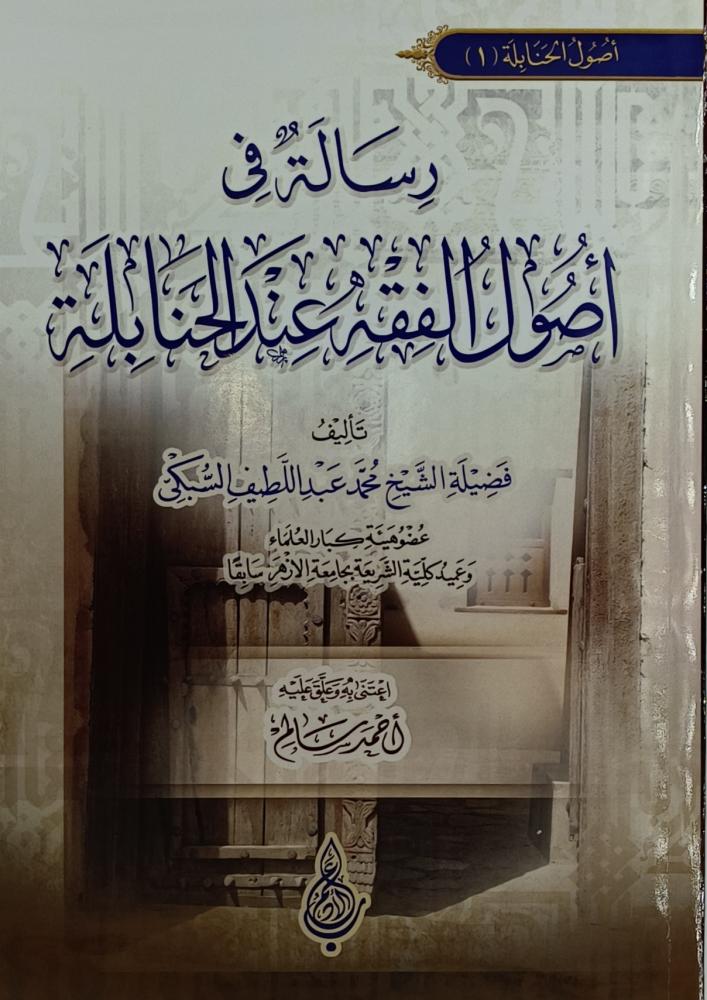 أُصُولُ الحَنَابِلَة (١)
رِسَالَةٌ فِي
أُصُولِ الفِقْهِ عِنْدَ الحَنَابِلَةِ
تَأْلِيفُ
فَضِيلَةِ الشَّيْخِ مُحَمَّد عَبْدِ اللَّطِيفِ السُّبْكِيِّ
عُضْو هَيْئَةِ كِبَار العُلَمَاء
وَعَمِيد كُلِّيَّة الشَّرِيعَة بِجَامِعَةِ الأَزْهَر سَابِقًا
اعْتَنَى بِهِ وَعَلَّقَ عَلَيْهِ
أَحْمَد سَالِم